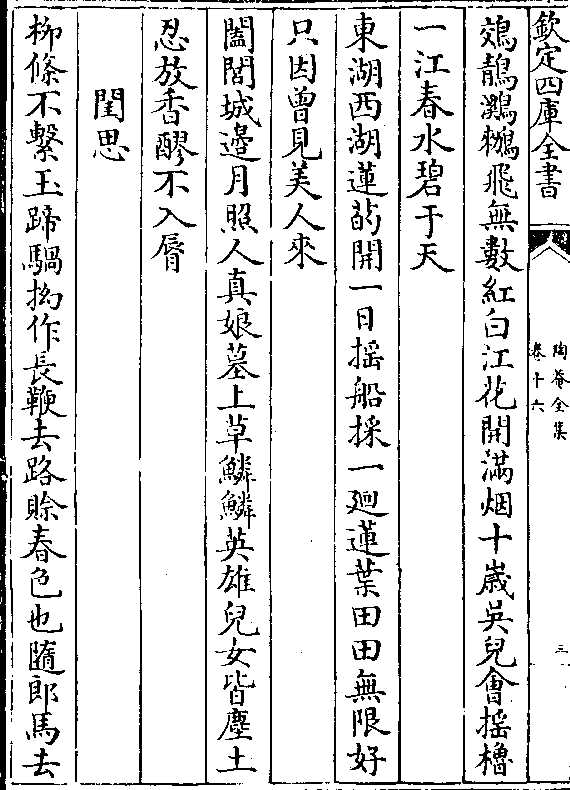 欽定四庫全書
陶菴全集
卷十六
三
鵁鶄鸂鶒飛無數紅白江花開滿烟十歲吳兒會揺櫓
一江春水碧于天
東湖西湖蓮菂開一日揺船採一廻蓮葉田田無限好
只因曾見美人來
闔閭城邉月照人真娘墓上草鱗鱗英雄兒女皆塵土
忍放香醪不入脣
閨思
柳條不繫玉蹄騧拗作長鞭去路賖春色也隨郎馬去